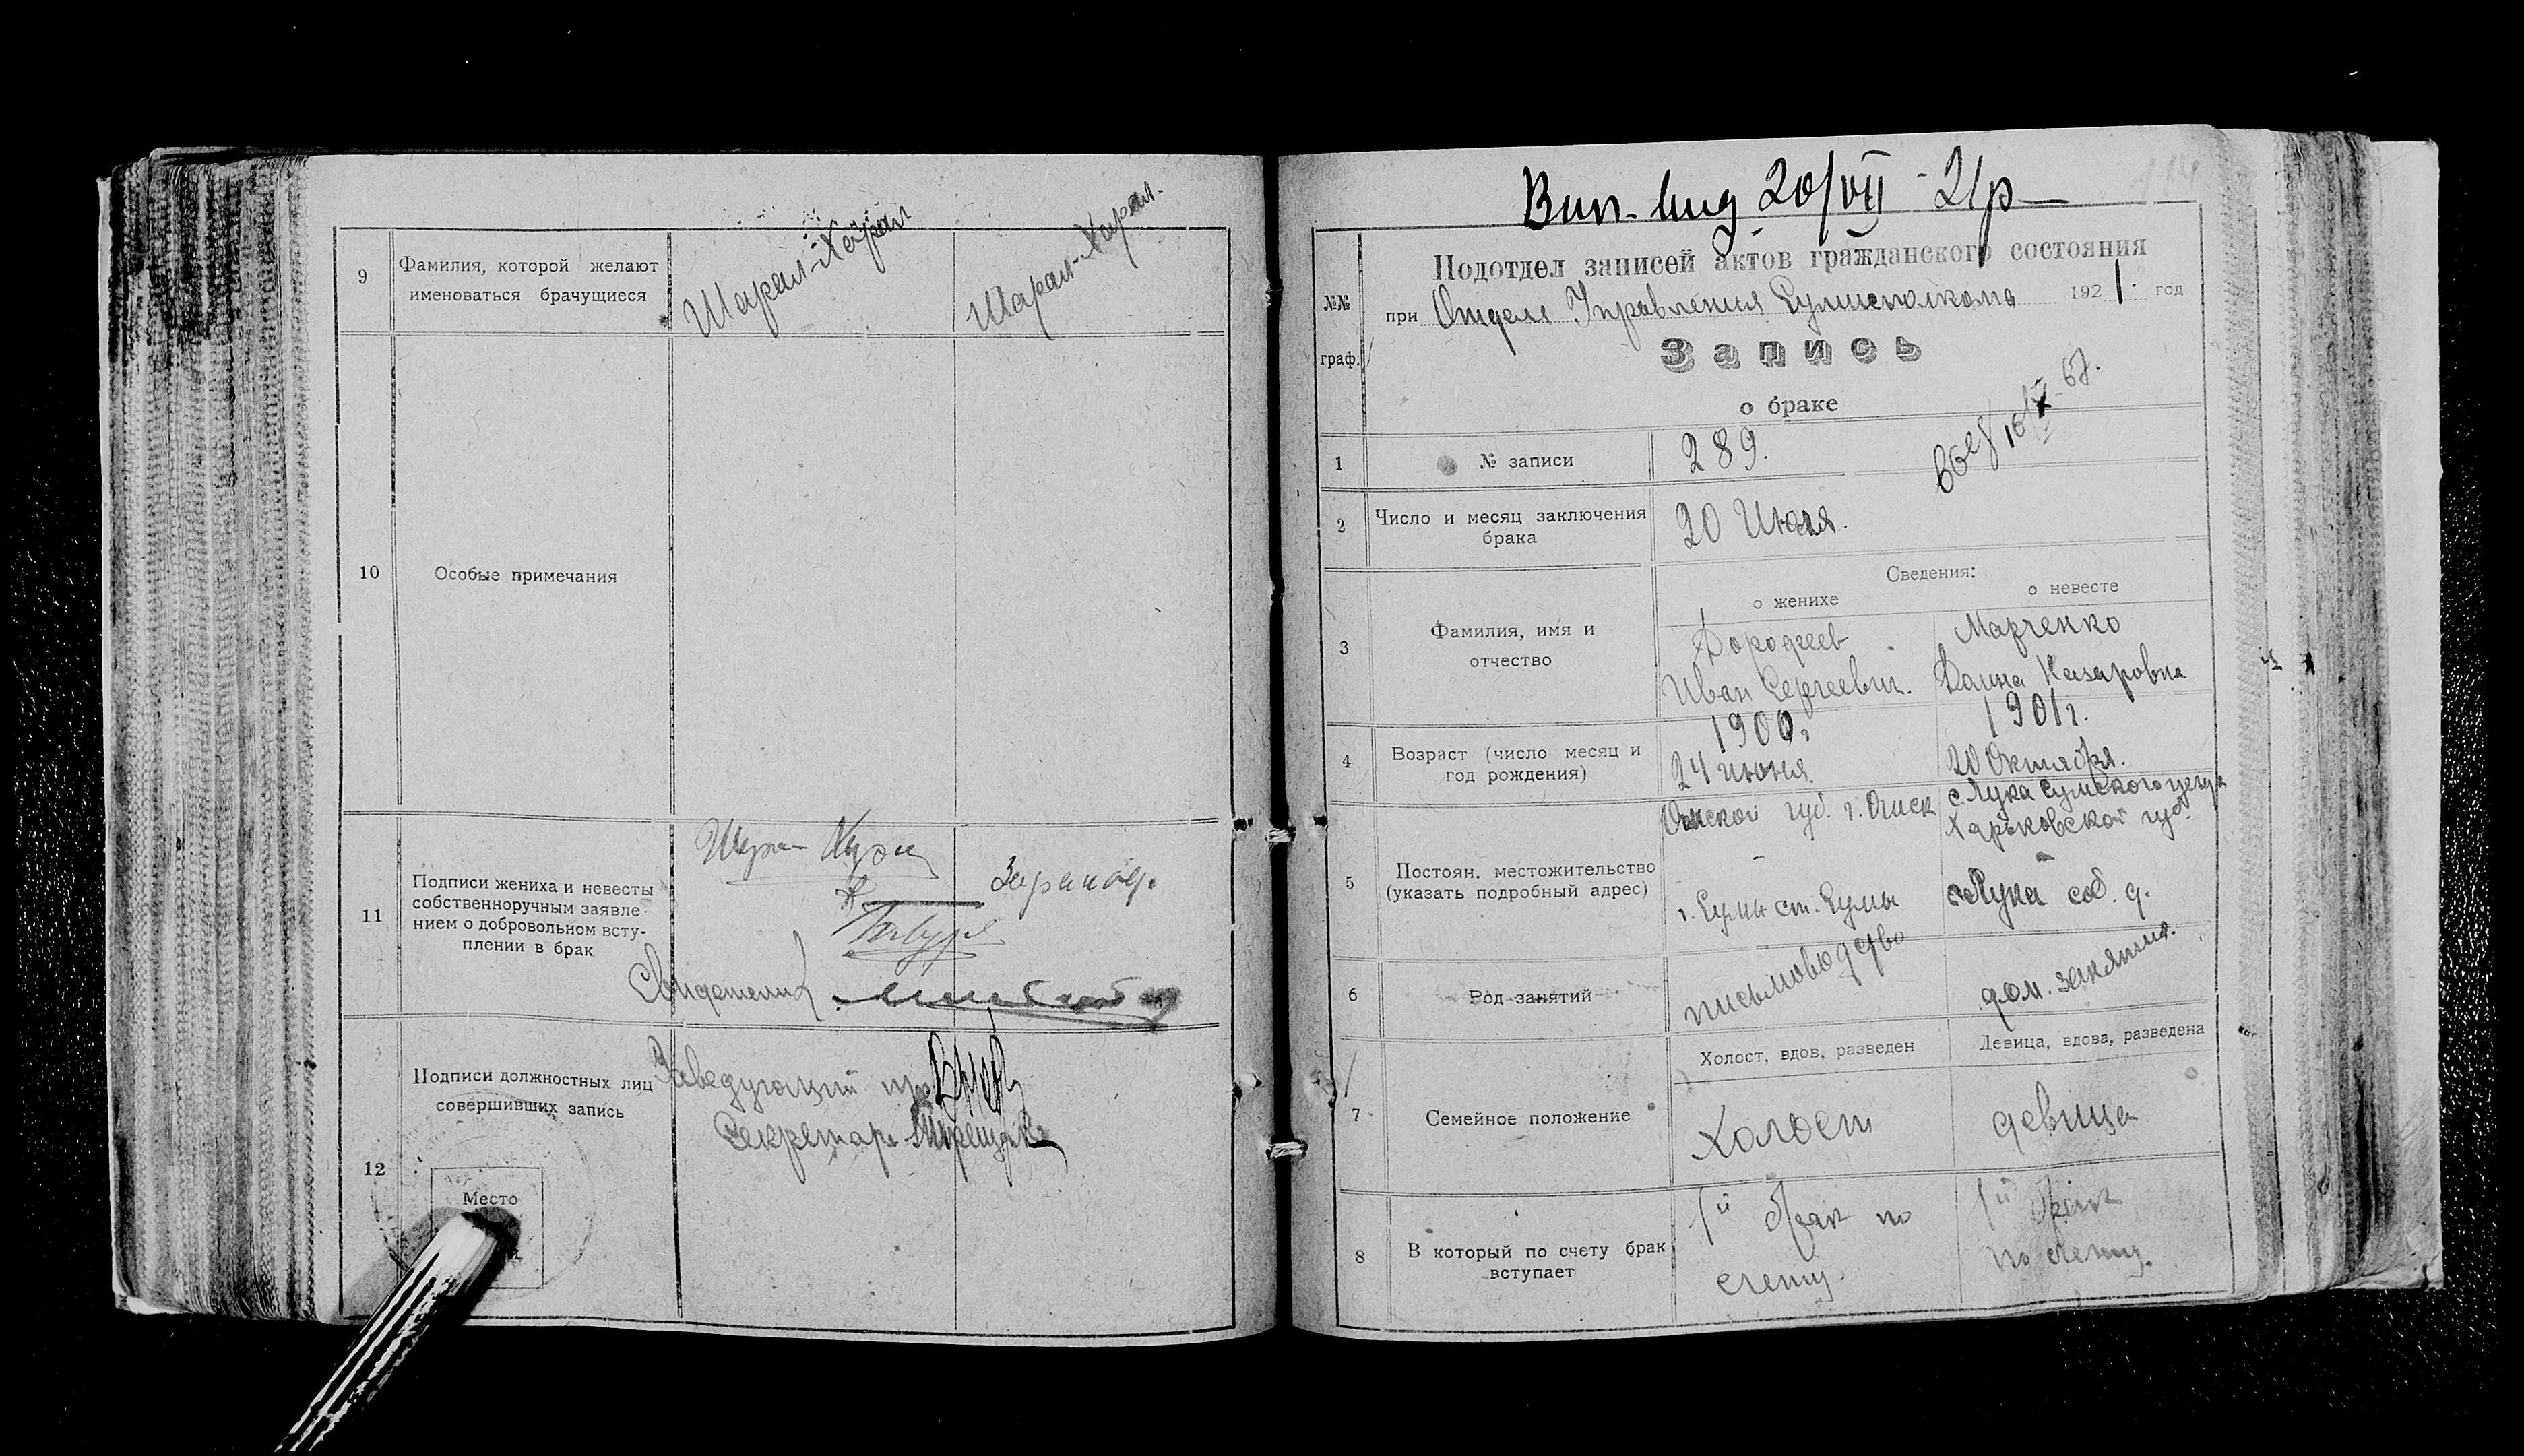 9
Фамилия, которой желают
именоваться брачущиеся
10
Особые примечания
11
Подписи жениха и невесты
собственноручным заявле-
нием о добровольном всту-
плении в брак
Свидетели
12
Подписи должностных лиц
совершивших запись
Заведующий
Секретарь
Место
20/VII - 21р
№№
граф.
Подотдел записей актов гражданского состояния
при Отделе Управления Сумисполкома 1921. год
Запись
о браке
1
№ записи
289.
2
Число и месяц заключения
брака
20 Июля.
3
Фамилия, имя и
отчество
Сведения:
о женихе
о невесте
Дорофеев
Иван Сергеевич.
Марченко
Назаровна
4
Возраст (число месяц и
год рождения)
1900г
24 июня
1901г.
20 Октября.
5
Постоян. местожительство
(указать подробный адрес)
Омской губ. г. Омск
г. Сумы ст. Сумы
с. Лука Сумского уезда
Харьковской губ.
с. Лука соб. д.
6
Род занятий
письмоводство
дом. занятия.
7
Семейное положение
Холост, вдов, разведен
Девица, вдова, разведена
холост
девица
8
В который по счету брак
вступает
1й брак по
счету.
1й брак
по счету.